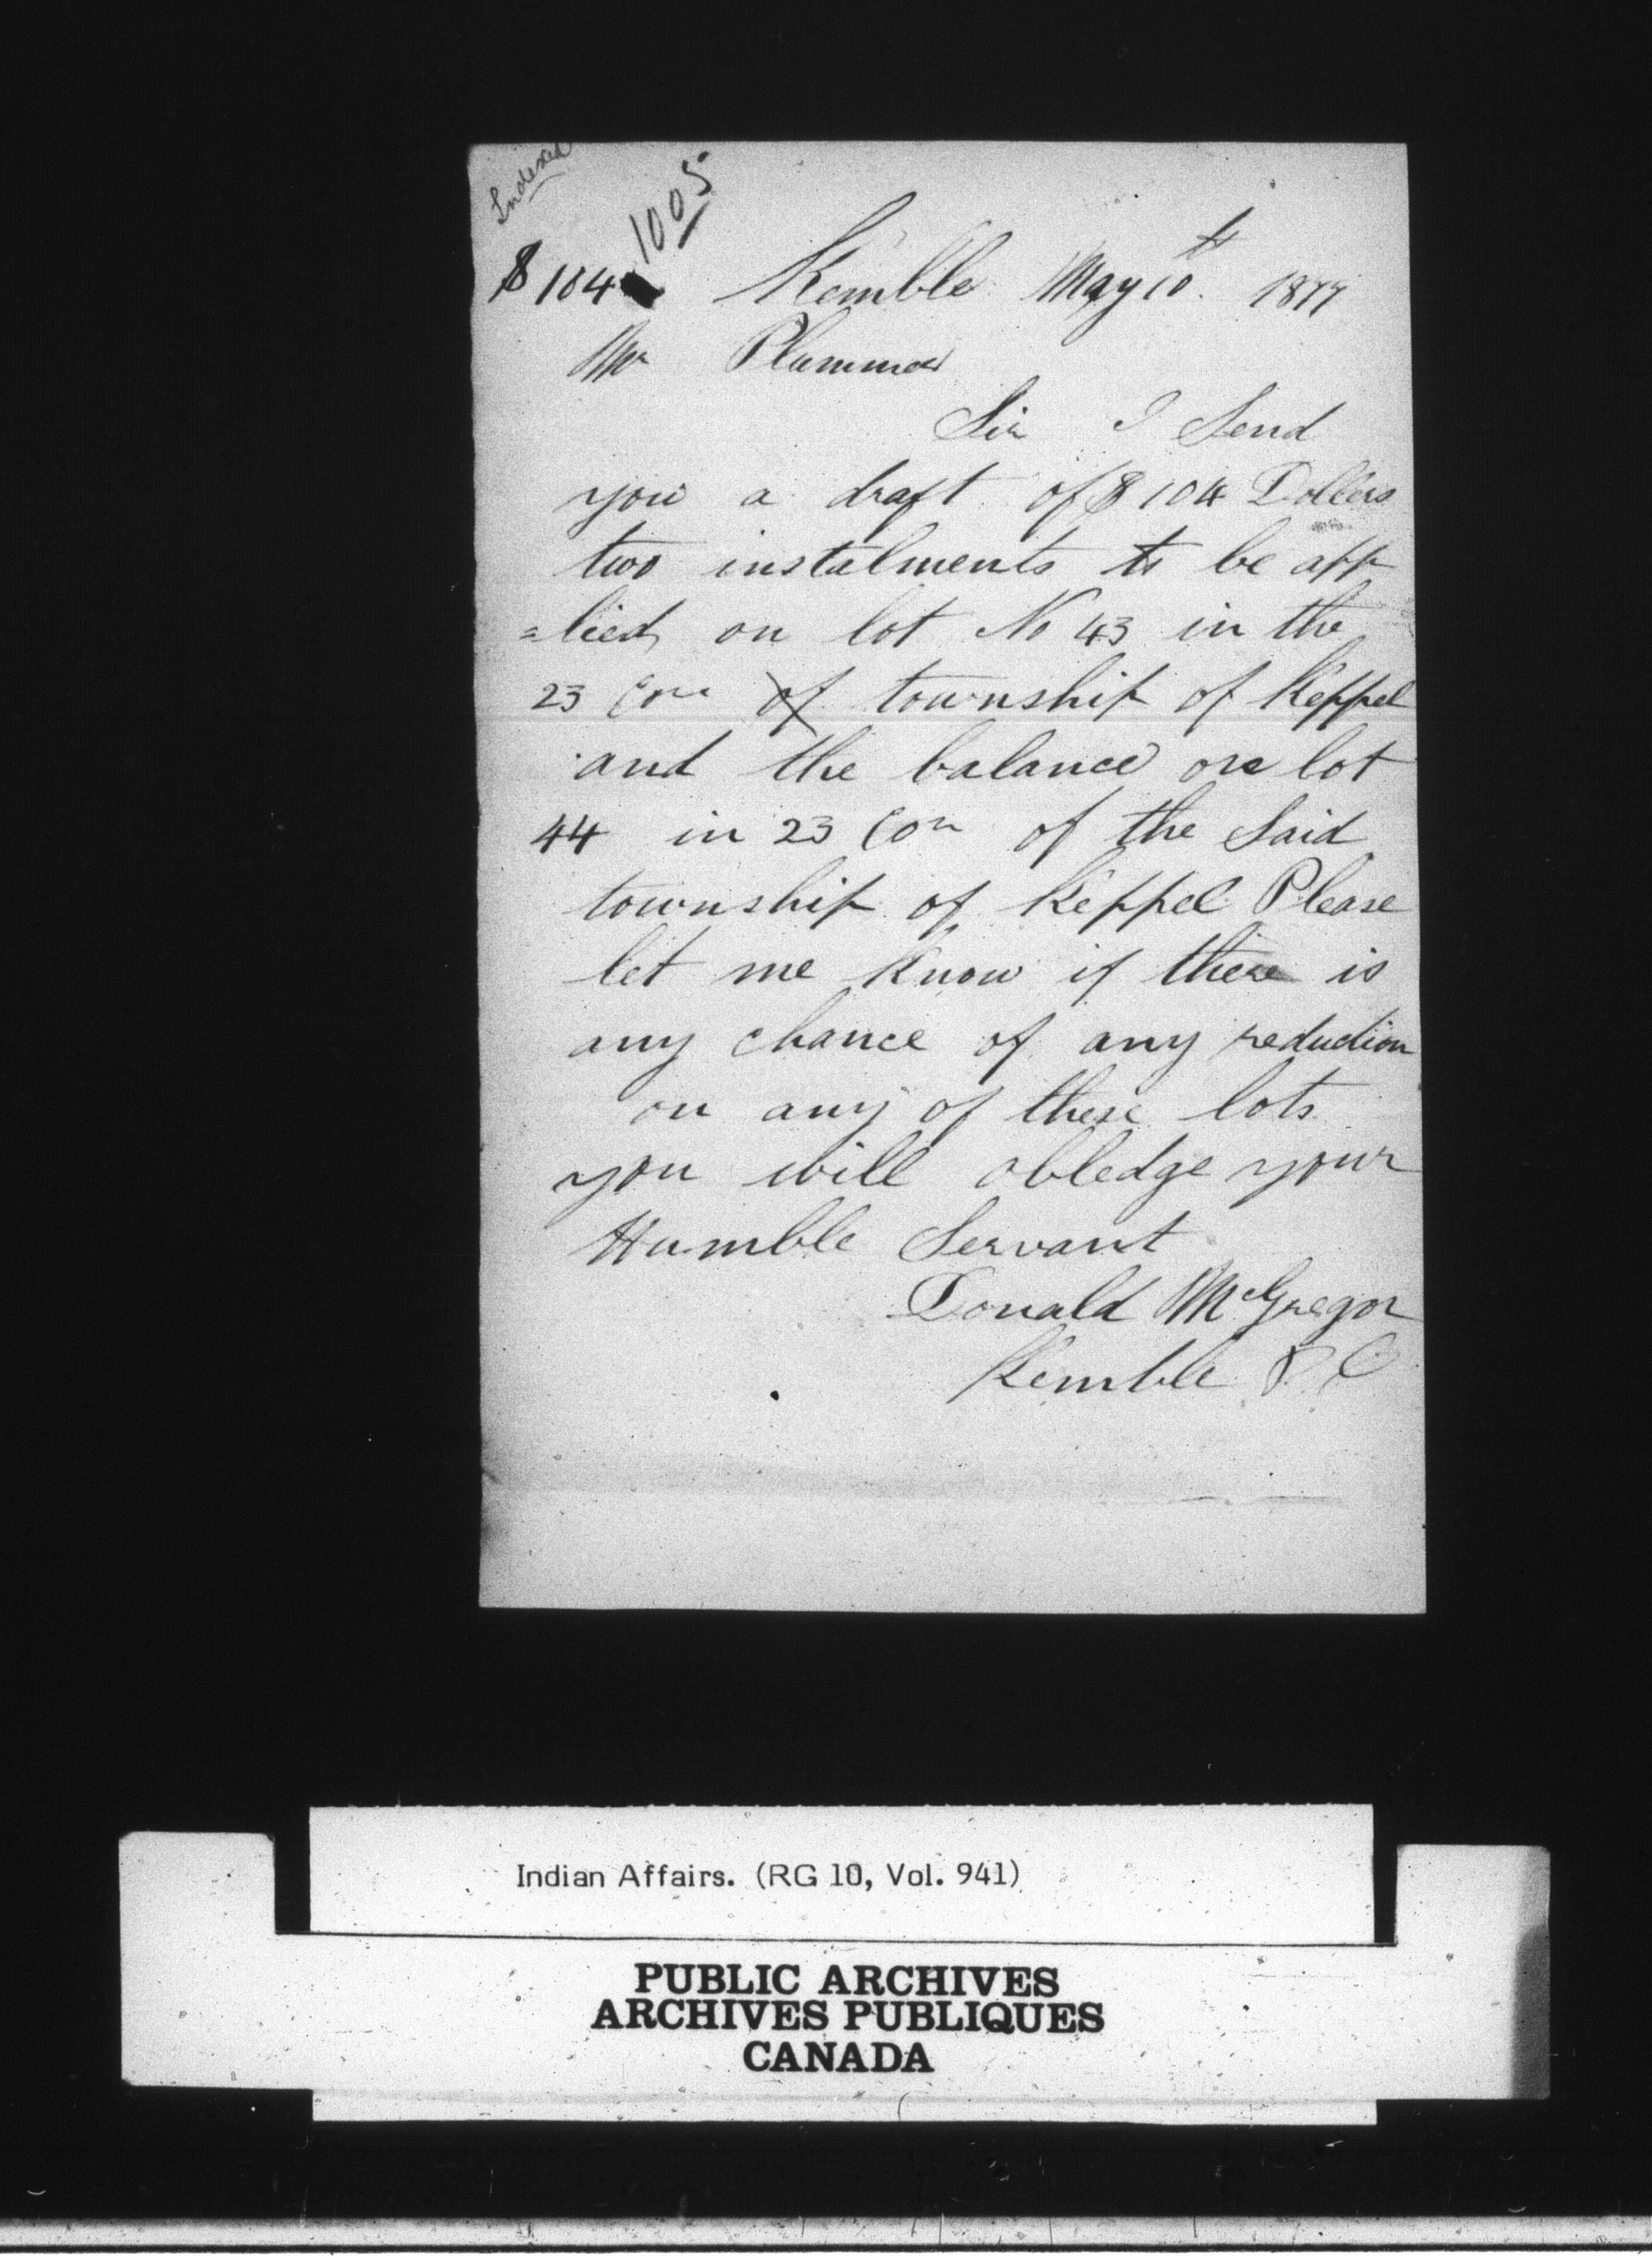 Indexed
1005
$104 Kemble May 10th 1877
Mr Plummer
Sir I Send
you a draft of $104 Dollers
two instalments to be app
=lied on lot No 43 in the
23 Con of township of Keppel
and the balance on lot
44 in 23 Con of the Said
township of Keppel Please
let me know if there is
any chance of any reduction
on any of these lots
you will obledge your
Humble Servant
Donald McGregor
Kemble P.O
Indian Affairs. (RG 10, Vol. 941)
PUBLIC ARCHIVES
ARCHIVES PUBLIQUES
CANADA